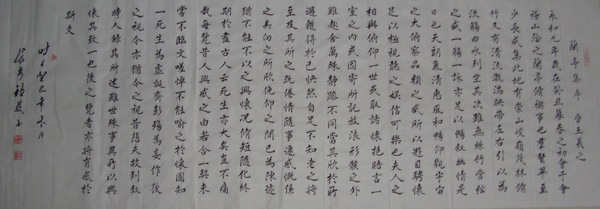 蘭亭序 晉王羲之
永和九年歲在癸丑暮春之初會于會
稽山陰之蘭亭脩禊事也羣賢畢至
少長咸集此地有崇山峻嶺茂林脩
竹又有清流激湍映帶左右引以為
流觴曲水列坐其次雖無絲竹管弦
之盛一觴一詠亦足以暢敘幽情是
日也天朗氣清惠風和暢仰觀宇宙
之大俯察品類之盛所以遊目騁懷
足以極視聽之娛信可樂也夫人之
相與俯仰一世或取諸懷抱晤言一
室之內或因寄所託放浪形骸之外
雖趣舍萬殊靜躁不同當其欣於所
遇暫得於己快然自足不知老之將
至及其所之既倦情隨事遷感慨係
之矣向之所欣俛仰之間已為陳迹
猶不能不以之興懷況脩短隨化終
期於盡古人云死生亦大矣豈不痛
哉每覽昔人興感之由若合一契未
嘗不臨文嗟悼不能喻之於懷固知
一死生為虛誕齊彭殤為妄作後
之視今亦猶今之視昔悲夫故列敘
時人錄其所述雖世殊事異所以興
懷其致一也後之覽者亦將有感於
斯文
癸巳年